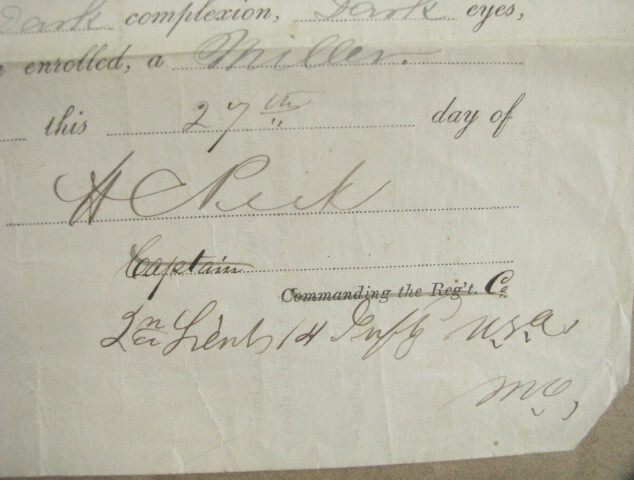 Dark complexion, Dark eyes,
enrolled, a Miller.
this 27th day of
H C Peck
Captain
Commanding the Reg't. Co
2nd Lieut 14 Inft'y U.S.A.
M.O.